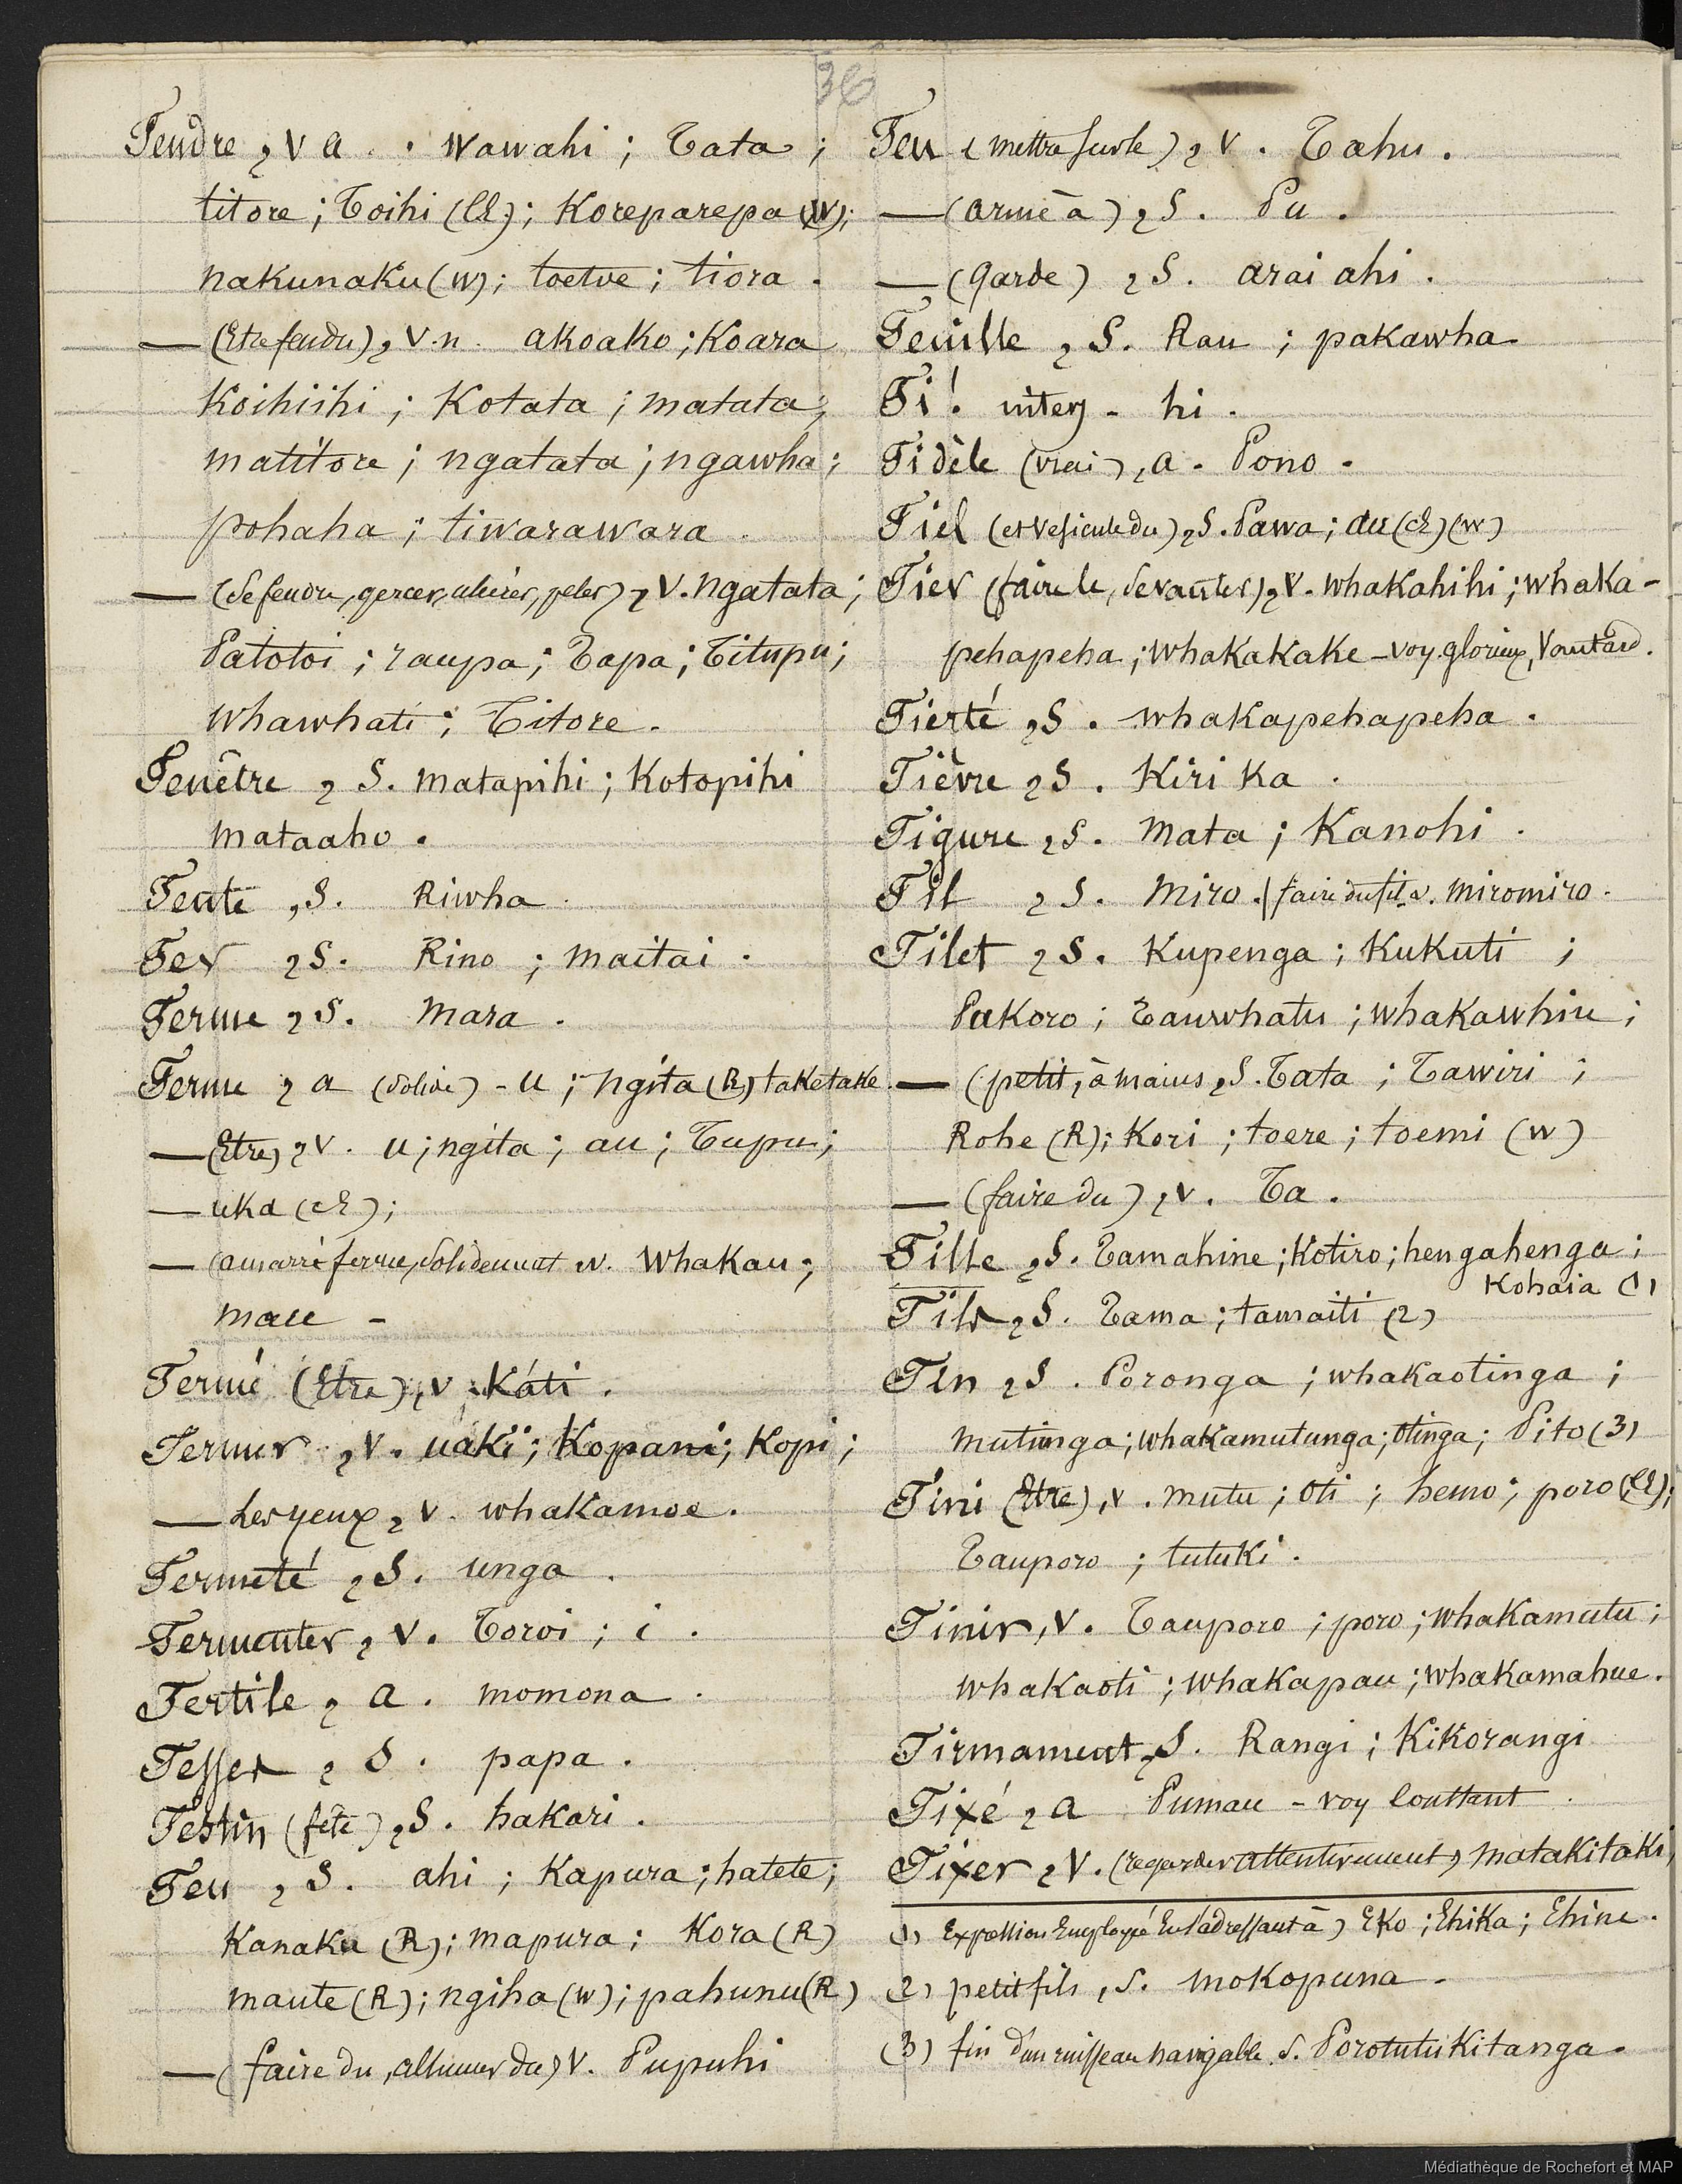 36
Fendre, v a. Wawahi ; Tata ;
titore ; Toihi (Ch) ; Koreparepa (W) ;
nakunaku (W) ; toetoe ; tiora .
— (Etre fendu), v.n. akoako ; Koara
Koihiihi ; Kotata ; matata ;
matitore ; ngatata ; ngawha ;
pohaha ; tiwarawara .
— (se fendre, gercer, peler), v. ngatata ;
Patotoi ; raupa ; Tapa ; Titupu ;
whawhati ; Titore .
Fenêtre, S. matapihi ; Kotopihi
mataaho .
Fente, S. Riwha .
Fer, S. Rino ; maitai .
Ferme, S. Mara .
Ferme, a (solide) - u ; ngita (R) taketake .
— (Etre), v. u ; ngita ; au ; Tupu ;
— uka (ch) ;
— (amarré ferme, solidement v. Whakau ;
mau -
Fermé (Etre), v ; Káti .
Fermer, v. uaki ; Kopani ; Kopi ;
— les yeux, v. whakamoe .
Fermeté, S. unga .
Fermenter, v. Toroi ; i .
Fertile, a . momona .
Fesser, S . papa .
Festin (fête), S . hakari .
Feu, S. ahi ; Kapura ; hatete ;
Kanaku (R) ; mapura ; Kora (R)
maute (R) ; ngiha (W) ; pahunu (R)
— (faire du, allumer du) v. Pupuhi
Feu (mettre sur le), v . Tahu .
— (arme à), S . Pu .
— (Garde), S. arai ahi .
Feuille, S. Rau ; pakawha .
Fi ! interj - hi .
Fidèle (vrai), a . Pono .
Fiel (et vesicule du), S. Pawa ; au (ch) (W)
Fier (faire le, se vanter), v. whakahihi ; whaka-
pehapeha ; whakakake - voy glorieux, Vantard .
Fierté, S . whakapehapeha .
Fièvre, S . Kiri Ka .
Figure, S. Mata ; Kanohi .
Fil, S. Miro . / faire du fil v. miromiro .
Filet, S. Kupenga ; Kukuti ;
Pakoro ; Tauwhatu ; whakawhiu ;
— (petit, à mains, S. Tata ; Tawiri ;
Rohe (R) ; Kori ; toere ; toemi (W)
— (faire du), v. Ta .
Fille, S. Tamahine ; Kotiro ; hengahenga ;
Kohaia (1)
Fils, S. Tama ; tamaiti (2)
Fin, S . Poronga ; whakaotinga ;
mutunga ; whakamutunga ; otinga ; Pito (3)
Fini (Etre), v . mutu ; oti ; hemo ; poro (Ch) ;
Tauporo ; tutuki .
Finir, v. Tauporo ; poro ; whakamutu ;
whakaoti ; whakapau ; whakamahue .
Firmament, S. Rangi ; Kikorangi
Fixé, a Pumau - voy Constant .
Fixer, v. (regarder attentivement) matakitaki,
(1) Expression Employé En s'adressant à) Eko ; Ehika ; Ehine .
(2) petit fils, S. mokopuna .
(3) fin d'un ruisseau navigable. S. Porotutukitanga .
Médiathèque de Rochefort et MAP